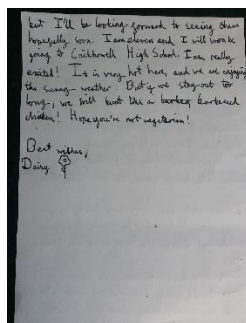 but I'll be looking-forward to seeing them
hopefully soon. I am eleven and I will soon be
going to Crickhowell High School. I am really
excited! It is very hot here, and we are enjoying
the sunny-weather. But if we stay-out too
long, we will burnt like a barbecued
chicken! Hope you're not vegetarian!
Best wishes,
Daisy